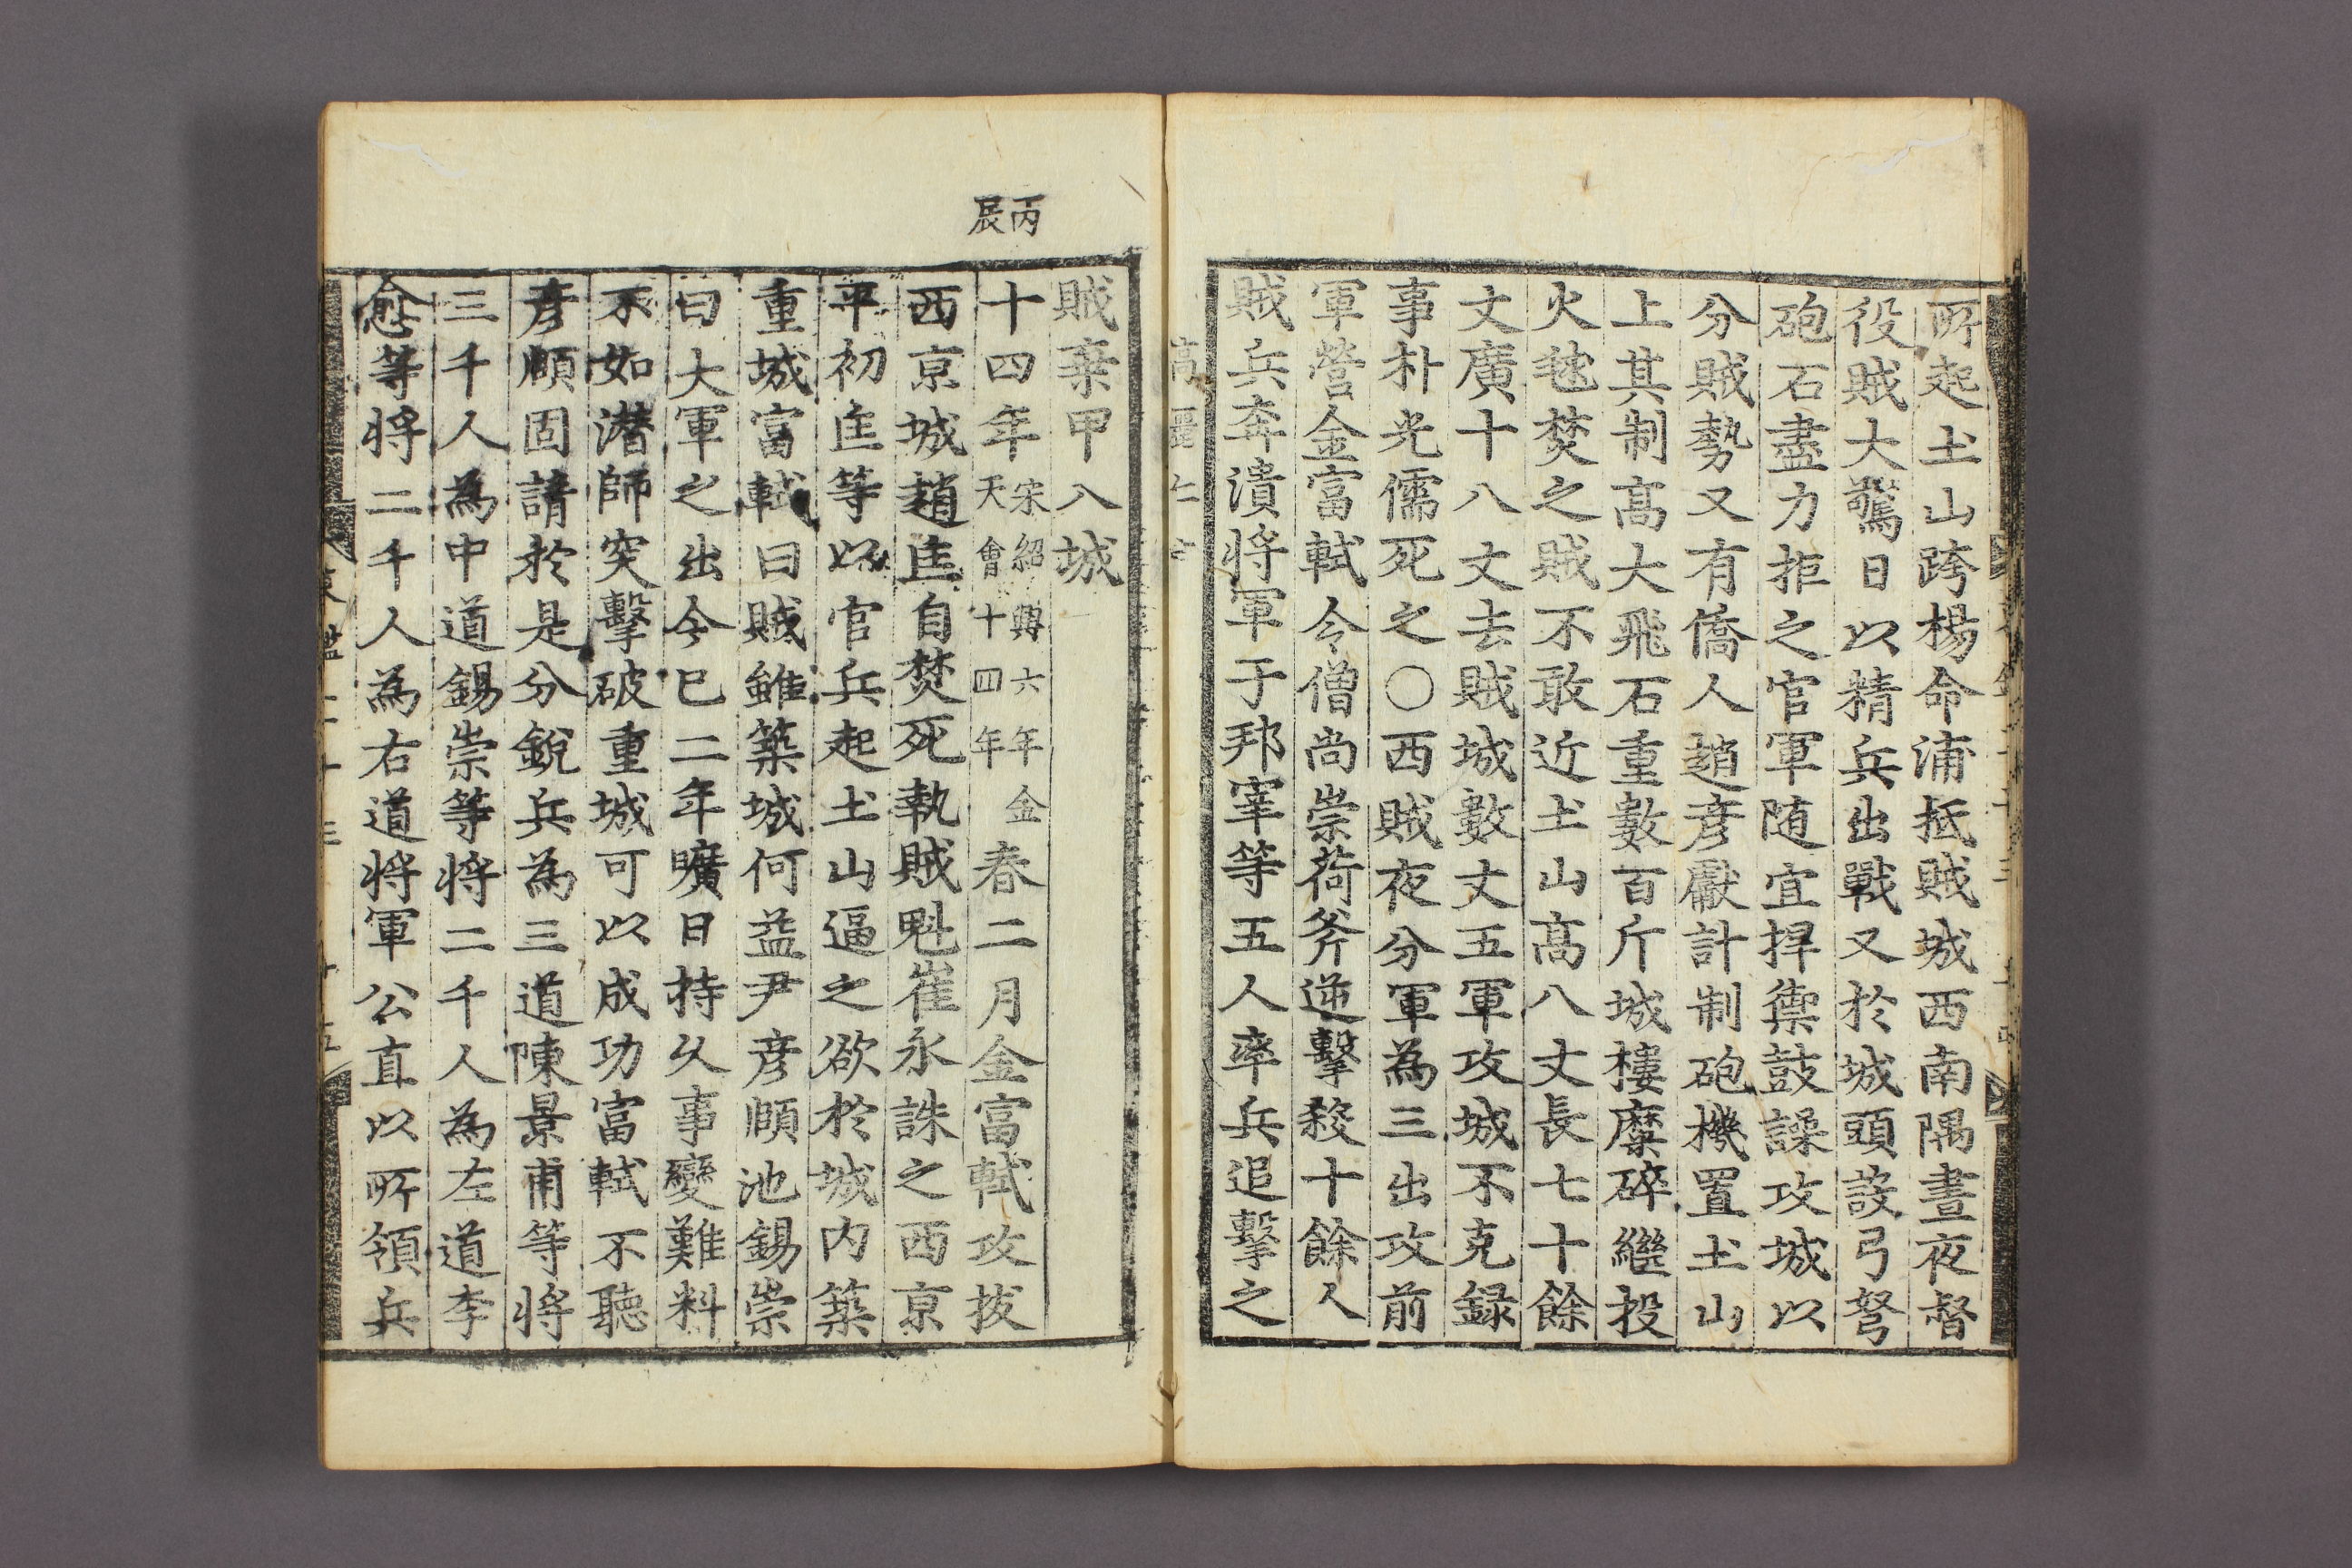 所起土山跨楊命浦抵賊城西南隅晝夜督
役賊大驚日以精兵出戰又於城頭設弓弩
砲石盡力拒之官軍随宜捍禦鼓譟攻城以
分賊勢又有僑人趙彦獻計制砲機置土山
上其制高大飛石重數百斤城樓糜碎繼投
火毬焚之賊不敢近土山高八丈長七十餘
文廣十八丈去賊城數丈五軍攻城不克録
事朴光儒死之〇西賊夜分軍為三出攻前
軍營金富軾令僧尚崇荷斧逆擊殺十餘人
賊兵奔潰將軍于邦宰等五人率兵追擊之
賊棄甲入城
丙辰
十四年宋紹興六年金天會十四年春二月金富軾攻拔
西京城趙匡自焚死執賊魁崔永誅之西京
平初匡等以官兵起土山逼之欲於城内築
重城富軾曰賊雖築城何益尹彦頤池錫崇
曰大軍之出今已二年曠日持久事變難料
不如潜師突擊破重城可以成功富軾不聽
彦頤固請於是分銳兵為三道陳景甫等將
三千人為中道錫崇等將二千人為左道李
愈等將二千人為右道將軍公直以所領兵